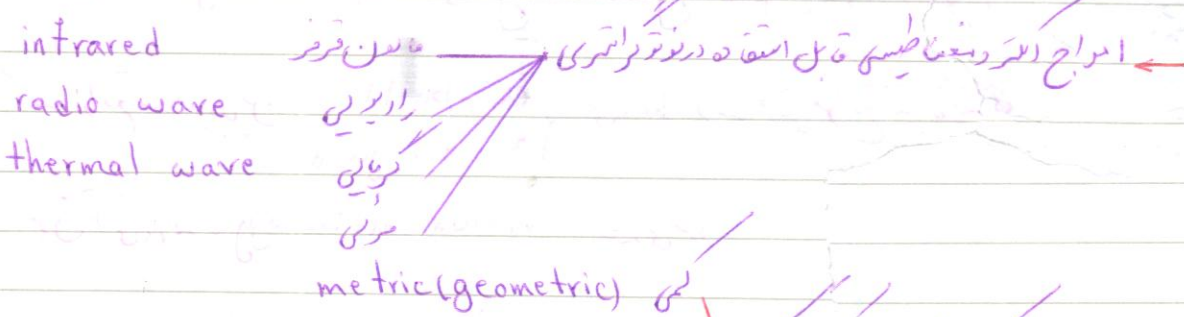 امواج الکترومغناطیسی قابل استفاده در فتوگرامتری مادون قرمز infrared
رادیویی radio wave
گرمایی thermal wave
مرئی
کمی metric(geometric)